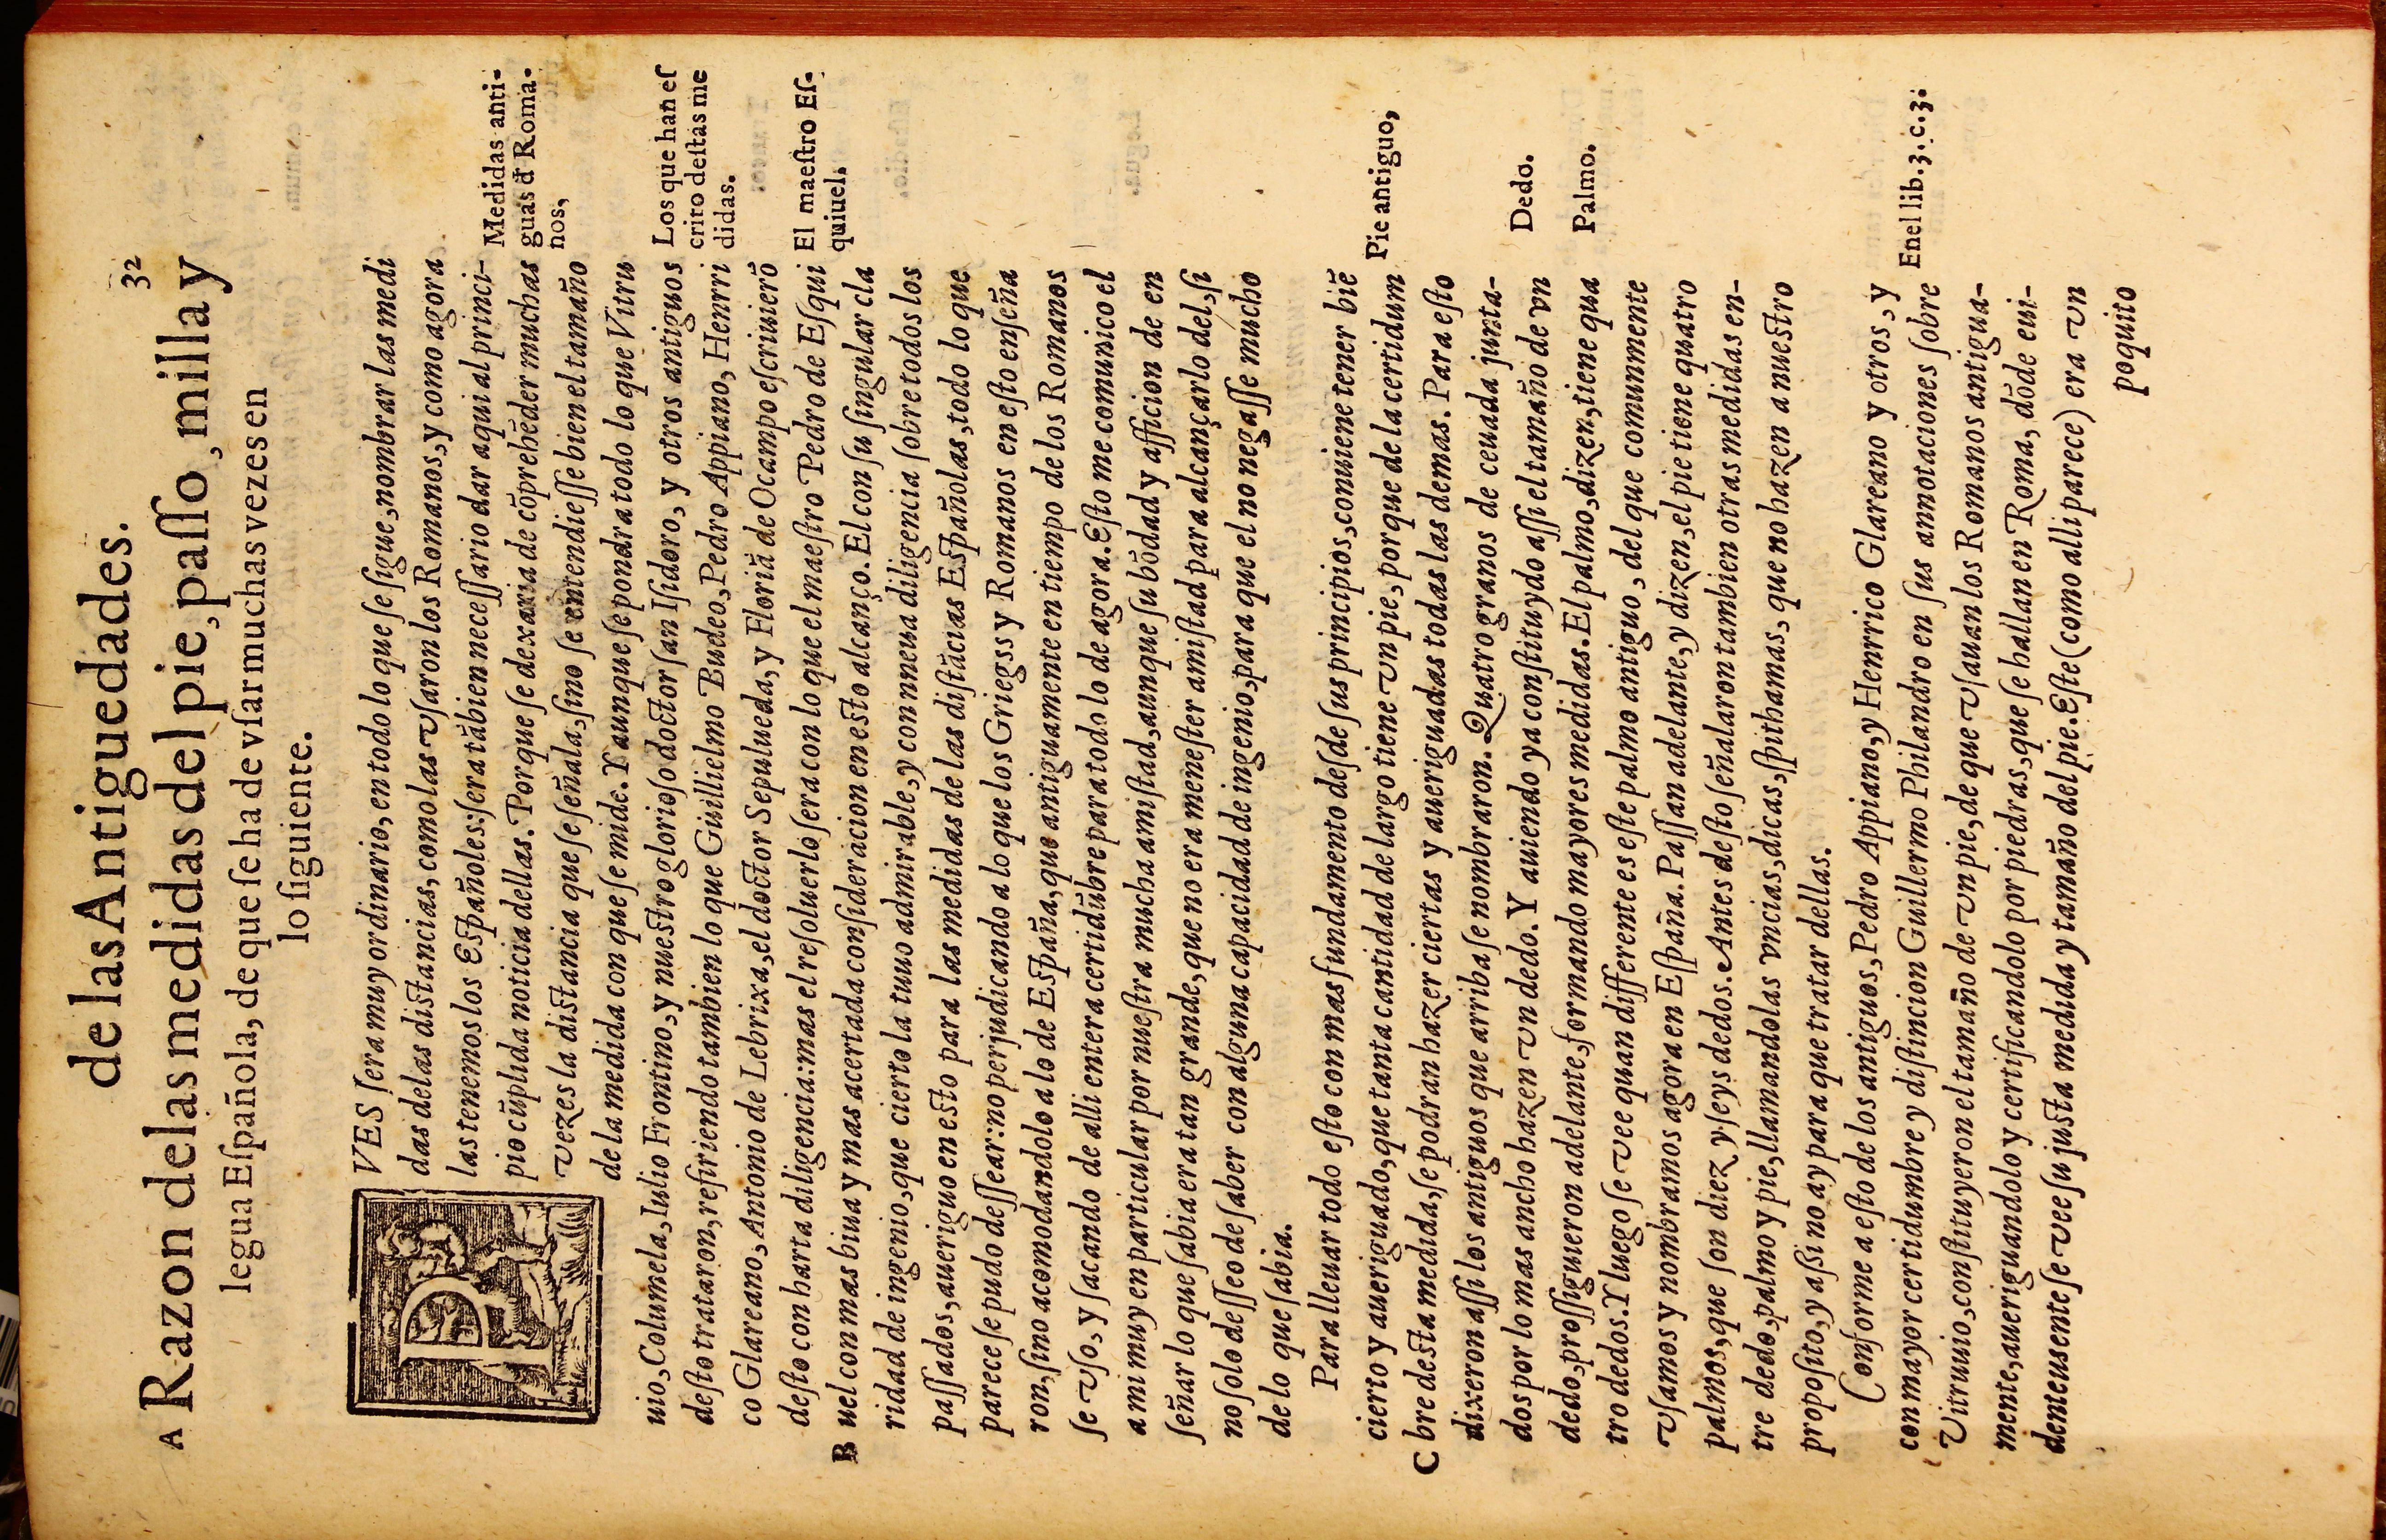 de las Antiguedades. 32
A Razon de las medidas del pie, paſſo, milla y
legua Eſpañola, de que ſe ha de vſar muchas vezes en
lo ſiguiente.
PVES ſera muy ordinario, en todo lo que ſe ſigue, nombrar las medi
das de las diſtancias, como las vſaron los Romanos, y como agora
las tenemos los Eſpañoles: ſera tãbien neceſſario dar aqui al princi-
pio cũplida noticia dellas. Porque ſe dexaria de cõprehẽder muchas
vezes la diſtancia que ſe ſeñala, ſino ſe entendieſſe bien el tamaño
de la medida con que ſe mide. Y aunque ſe pondra todo lo que Vitru
uio, Columela, Iulio Frontino, y nueſtro glorioſo doctor ſan Iſidoro, y otros antiguos
deſto trataron, refiriendo tambien lo que Guillielmo Budeo, Pedro Appiano, Henrri
co Glareano, Antonio de Lebrixa, el doctor Sepulueda, y Floriã de Ocampo eſcriuierõ
deſto con harta diligencia: mas el reſoluerlo ſera con lo que el maeſtro Pedro de Eſqui
B uel con mas biua y mas acertada conſideracion en eſto alcanço. El con ſu ſingular cla
ridad de ingenio, que cierto la tuuo admirable, y con nueua diligencia ſobre todos los
paſſados, aueriguo en eſto para las medidas de las diſtãcias Eſpañolas, todo lo que
parece ſe pudo deſſear: no perjudicando a lo que los Griegss y Romanos en eſto enſeña
ron, ſino acomodandolo a lo de Eſpaña, que antiguamente en tiempo de los Romanos
ſe vſo, y ſacando de alli entera certidũbre para todo lo de agora. Eſto me comunico el
a mi muy en particular por nueſtra mucha amiſtad, aunque ſu bõdad y afficion de en
ſeñar lo que ſabia era tan grande, que no era meneſter amiſtad para alcançarlo del, ſi
no ſolo deſſeo de ſaber con alguna capacidad de ingenio, para que el no negaſſe mucho
de lo que ſabia.
Para lleuar todo eſto con mas fundamento deſde ſus principios, conuiene tener biẽ
cierto y aueriguado, que tanta cantidad de largo tiene vn pie, porque de la certidum
C bre deſta medida, ſe podran hazer ciertas y aueriguadas todas las demas. Para eſto
dixeron aſſi los antiguos que arriba ſe nombraron. Quatro granos de ceuada junta-
dos por lo mas ancho hazen vn dedo. Y auiendo ya conſtituydo aſſi el tamaño de vn
dedo, proſſiguieron adelante, formando mayores medidas. El palmo, dizen, tiene qua
tro dedos. Y luego ſe vee quan differente es eſte palmo antiguo, del que comunmente
vſamos y nombramos agora en Eſpaña. Paſſan adelante, y dizen, el pie tiene quatro
palmos, que ſon diez y ſeys dedos. Antes deſto ſeñalaron tambien otras medidas en-
tre dedo, palmo y pie, llamandolas vncias, dicas, ſpithamas, que no hazen a nueſtro
propoſito, y aſsi no ay para que tratar dellas.
Conforme a eſto de los antiguos, Pedro Appiano, y Henrrico Glareano y otros, y
con mayor certidumbre y diſtincion Guillermo Philandro en ſus annotaciones ſobre
Vitruuio, conſtituyeron el tamaño de vn pie, de que vſauan los Romanos antigua-
mente, aueriguandolo y certificandolo por piedras, que ſe hallan en Roma, dõde eui-
denteusente ſe vee ſu juſta medida y tamaño del pie. Eſte (como alli parece) era vn
poquito
Medidas anti-
guas đ Roma-
nos,
Los que han eſ
crito deſtas me
didas.
El maeſtro Eſ-
quiuel.
Pie antiguo,
Dedo.
Palmo.
En el lib. 3. c. 3.